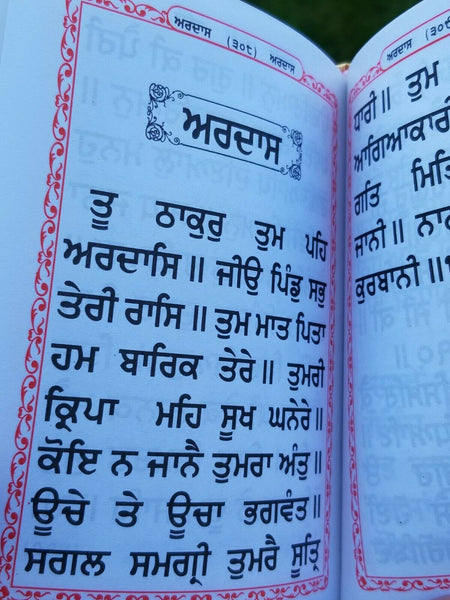 ਅਰਦਾਸ (੩੦੮) ਅਰਦਾਸ
ਅਰਦਾਸ
ਤੂ ਠਾਕੁਰੁ ਤੁਮ ਪਹਿ
ਅਰਦਾਸਿ॥ ਜੀਉ ਪਿੰਡੁ ਸਭੁ
ਤੇਰੀ ਰਾਸਿ॥ ਤੁਮ ਮਾਤ ਪਿਤਾ
ਹਮ ਬਾਰਿਕ ਤੇਰੇ॥ ਤੁਮਰੀ
ਕ੍ਰਿਪਾ ਮਹਿ ਸੂਖ ਘਨੇਰੇ॥
ਕੋਇ ਨ ਜਾਨੈ ਤੁਮਰਾ ਅੰਤੁ॥
ਊਚੇ ਤੇ ਊਚਾ ਭਗਵੰਤ॥
ਸਗਲ ਸਮਗ੍ਰੀ ਤੁਮਰੈ ਸੂਤ੍ਰਿ
ਅਰਦਾਸ (੩੦੯
ਧਾਰੀ॥ ਤੁਮ
ਆਗਿਆਕਾਰੀ
ਗਤਿ ਮਿਤਿ
ਜਾਨੀ॥ ਨਾਨ
ਕੁਰਬਾਨੀ॥